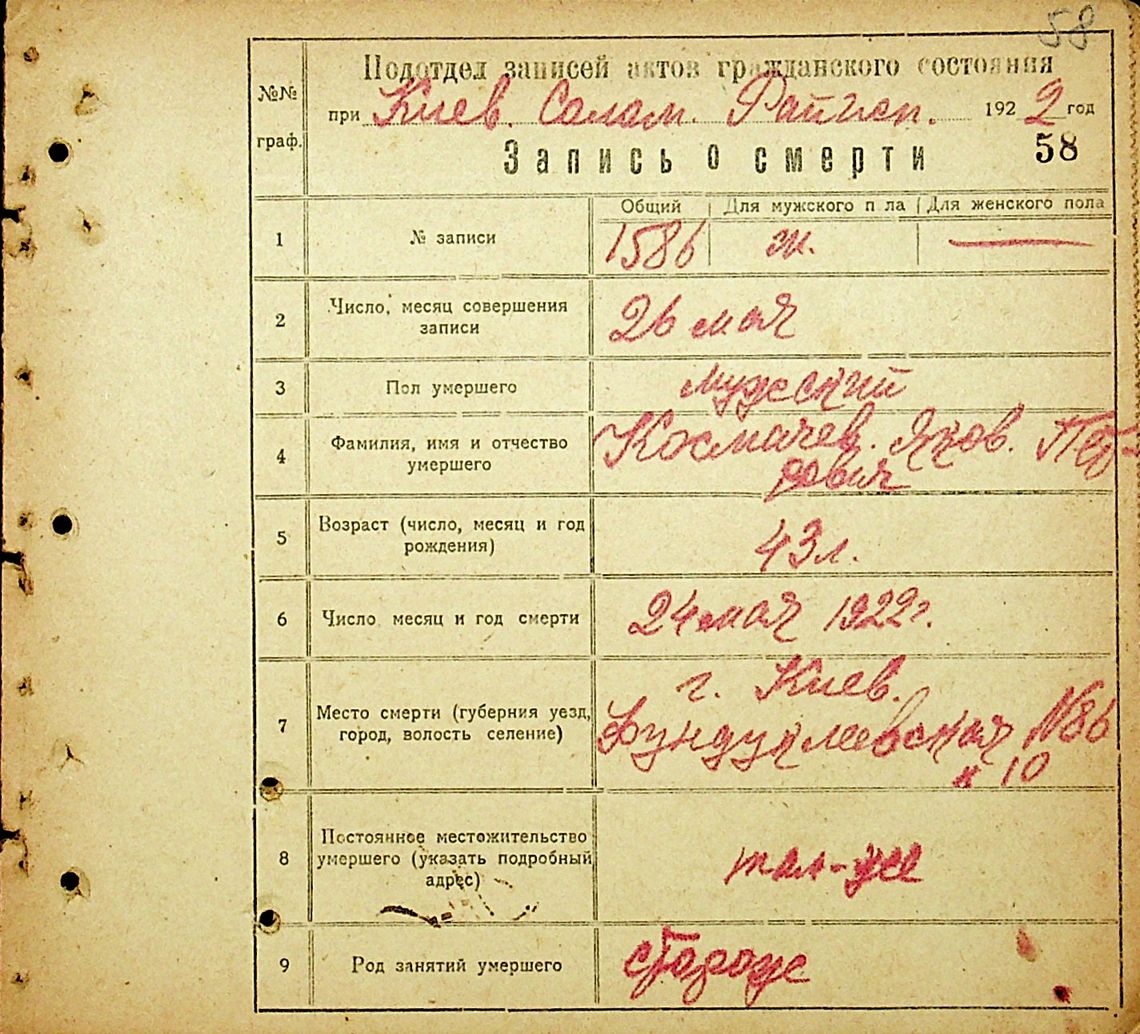 58
Подотдел записей актов гражданского состояния
№№ граф.
при Киев. Салам. Райисп. 1922 год
Запись о смерти 58
Общий Для мужского п ла Для женского пола
1 № записи 1586 м. —
2 Число, месяц совершения
записи
26 мая
3 Пол умершего мужеский
4 Фамилия, имя и отчество
умершего
Космачев. Яков. Пет-
рович
5 Возраст (число, месяц и год
рождения)
43 л.
6 Число месяц и год смерти 24 мая 1922 г.
7 Место смерти (губерния уезд,
город, волость селение)
г. Киев.
Фундуклеевская №86
к 10
8 Постоянное местожительство
умершего (указать подробный
адрес)
там-же
9 Род занятий умершего сторож